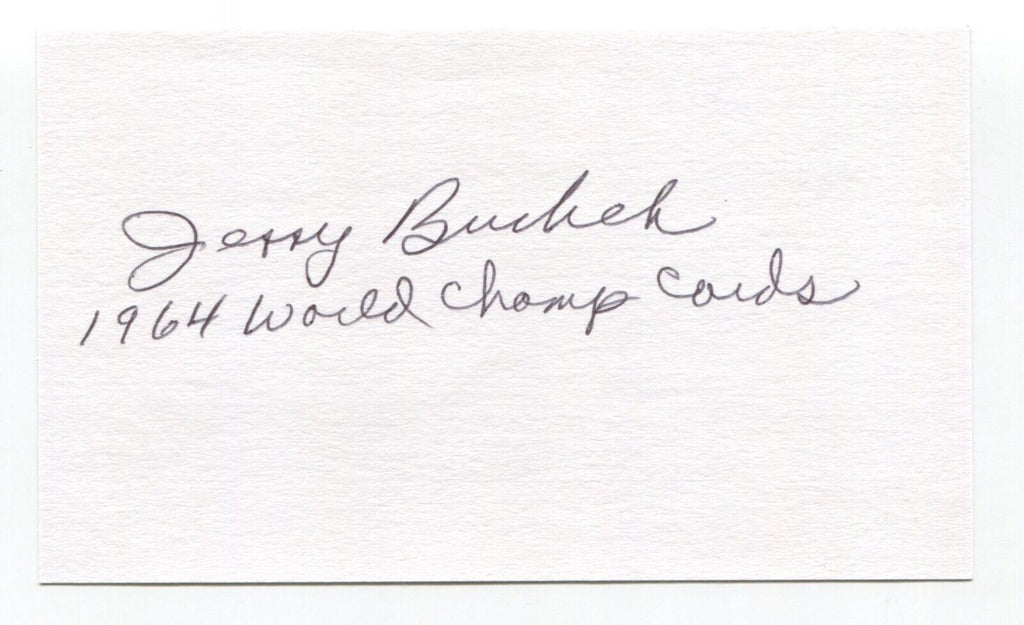 Jerry Buchek
1964 World Champ Cards